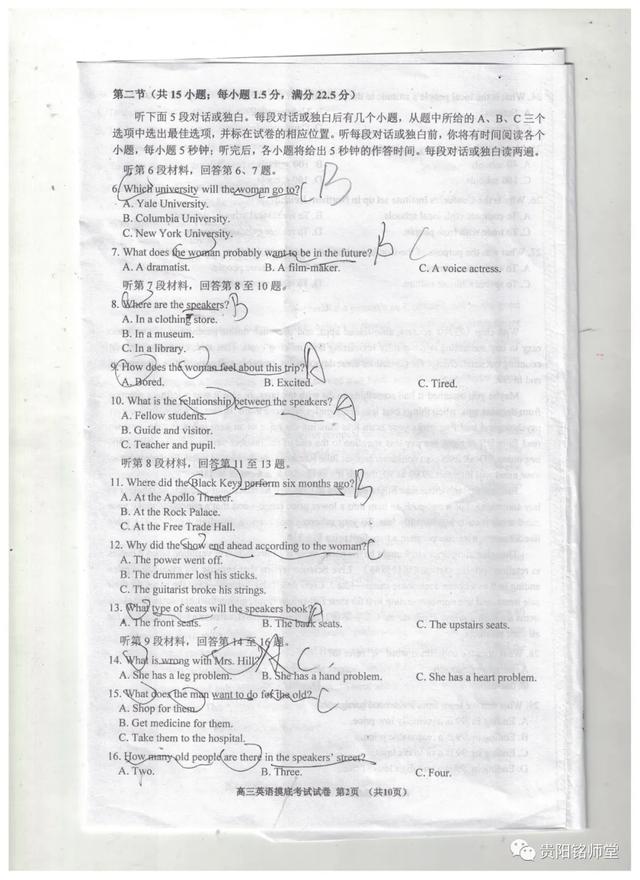 第二节（共 15 小题；每小题 1.5 分，满分 22.5 分）
听下面 5 段对话或独白。每段对话或独白后有几个小题，从题中所给的 A、B、C 三个
选项中选出最佳选项，并标在试卷的相应位置。听每段对话或独白前，你将有时间阅读各个
小题，每小题 5 秒钟；听完后，各小题将给出 5 秒钟的作答时间。每段对话或独白读两遍。
听第 6 段材料，回答第 6、7 题。
6. Which university will the woman go to? C B
A. Yale University.
B. Columbia University.
C. New York University.
7. What does the woman probably want to be in the future? B C
A. A dramatist. B. A film-maker. C. A voice actress.
听第 7 段材料，回答第 8 至 10 题。
8. Where are the speakers? B
A. In a clothing store.
B. In a museum.
C. In a library.
9. How does the woman feel about this trip? A
A. Bored. B. Excited. C. Tired.
10. What is the relationship between the speakers? A
A. Fellow students.
B. Guide and visitor.
C. Teacher and pupil.
听第 8 段材料，回答第 11 至 13 题。
11. Where did the Black Keys perform six months ago? B
A. At the Apollo Theater.
B. At the Rock Palace.
C. At the Free Trade Hall.
12. Why did the show end ahead according to the woman? C
A. The power went off.
B. The drummer lost his sticks.
C. The guitarist broke his strings.
13. What type of seats will the speakers book? A
A. The front seats. B. The back seats. C. The upstairs seats.
听第 9 段材料，回答第 14 至 16 题。
14. What is wrong with Mrs. Hill? A C
A. She has a leg problem. B. She has a hand problem. C. She has a heart problem.
15. What does the man want to do for the old? C
A. Shop for them.
B. Get medicine for them.
C. Take them to the hospital.
16. How many old people are there in the speakers' street?
A. Two. B. Three. C. Four.
高三英语摸底考试试卷 第2页 （共10页）
贵阳铭师堂